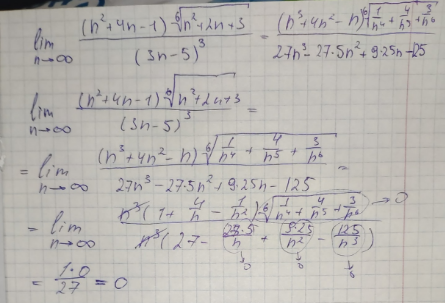 lim n→∞ (n²+4n-1) ⁶√(n²+2n+3) / (3n-5)³ = (n³+4n²-n) ⁶√(1/n⁴ + 4/n⁵ + 3/n⁶) / 27n³-27·5n²+9·25n-25
lim n→∞ (n²+4n-1) ⁶√(n²+2n+3) / (3n-5)³ =
= lim n→∞ (n³+4n²-n) ⁶√(1/n⁴ + 4/n⁵ + 3/n⁶) / 27n³-27·5n²+9·25n-125 =
= lim n→∞ n³(1+ 4/n - 1/n²) ⁶√(1/n⁴ + 4/n⁵ + 3/n⁶) →0 / n³(27- 27·5/n + 9·25/n² - 125/n³) ↓0 ↓0 ↓0
= 1·0/27 = 0